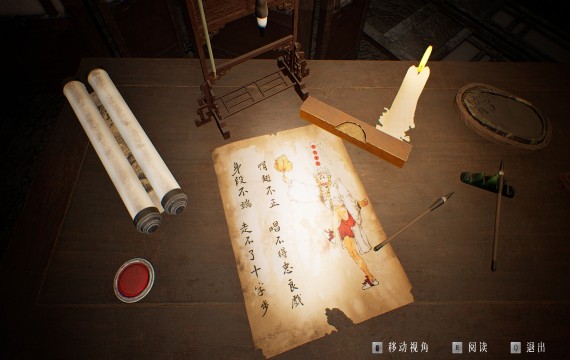 帽翅不正 唱不得忠良戲
身段不端 走不了十字步
移动视角 阅读 退出